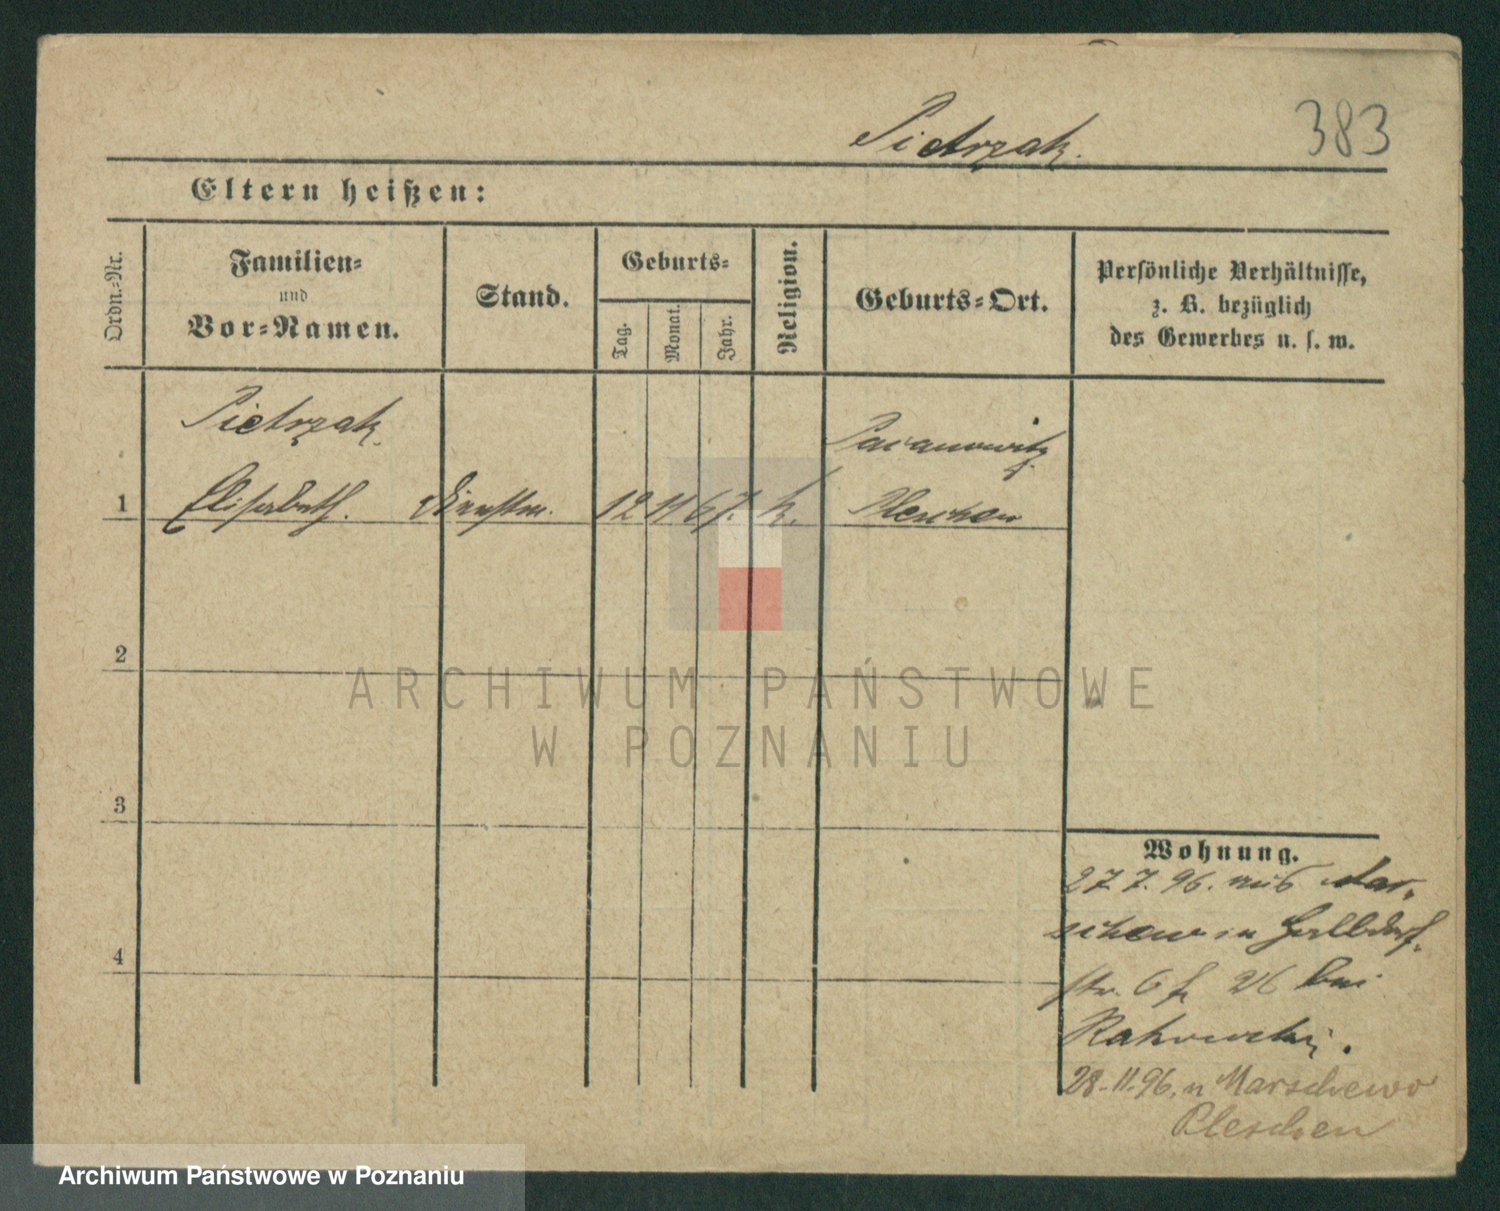 Pietrzak.
383
Eltern heißen:
Ordn.-Nr.
Familien-
und
Vor-Namen.
Stand.
Geburts-
Tag.
Monat.
Jahr.
Religion.
Geburts-Ort.
Persönliche Verhältnisse,
z. B. bezüglich
des Gewerbes u. s. w.
Pietrzak
1 Elisabeth. Dienstm. 12 11 67. k. Pleschen
2
3
4
Wohnung.
27. 7. 96. aus Mar-
schew in
str. 6 26 bei
28.11.96. n Marschewo
Pleschen
ARCHIWUM PAŃSTWOWE
W POZNANIU
Archiwum Państwowe w Poznaniu